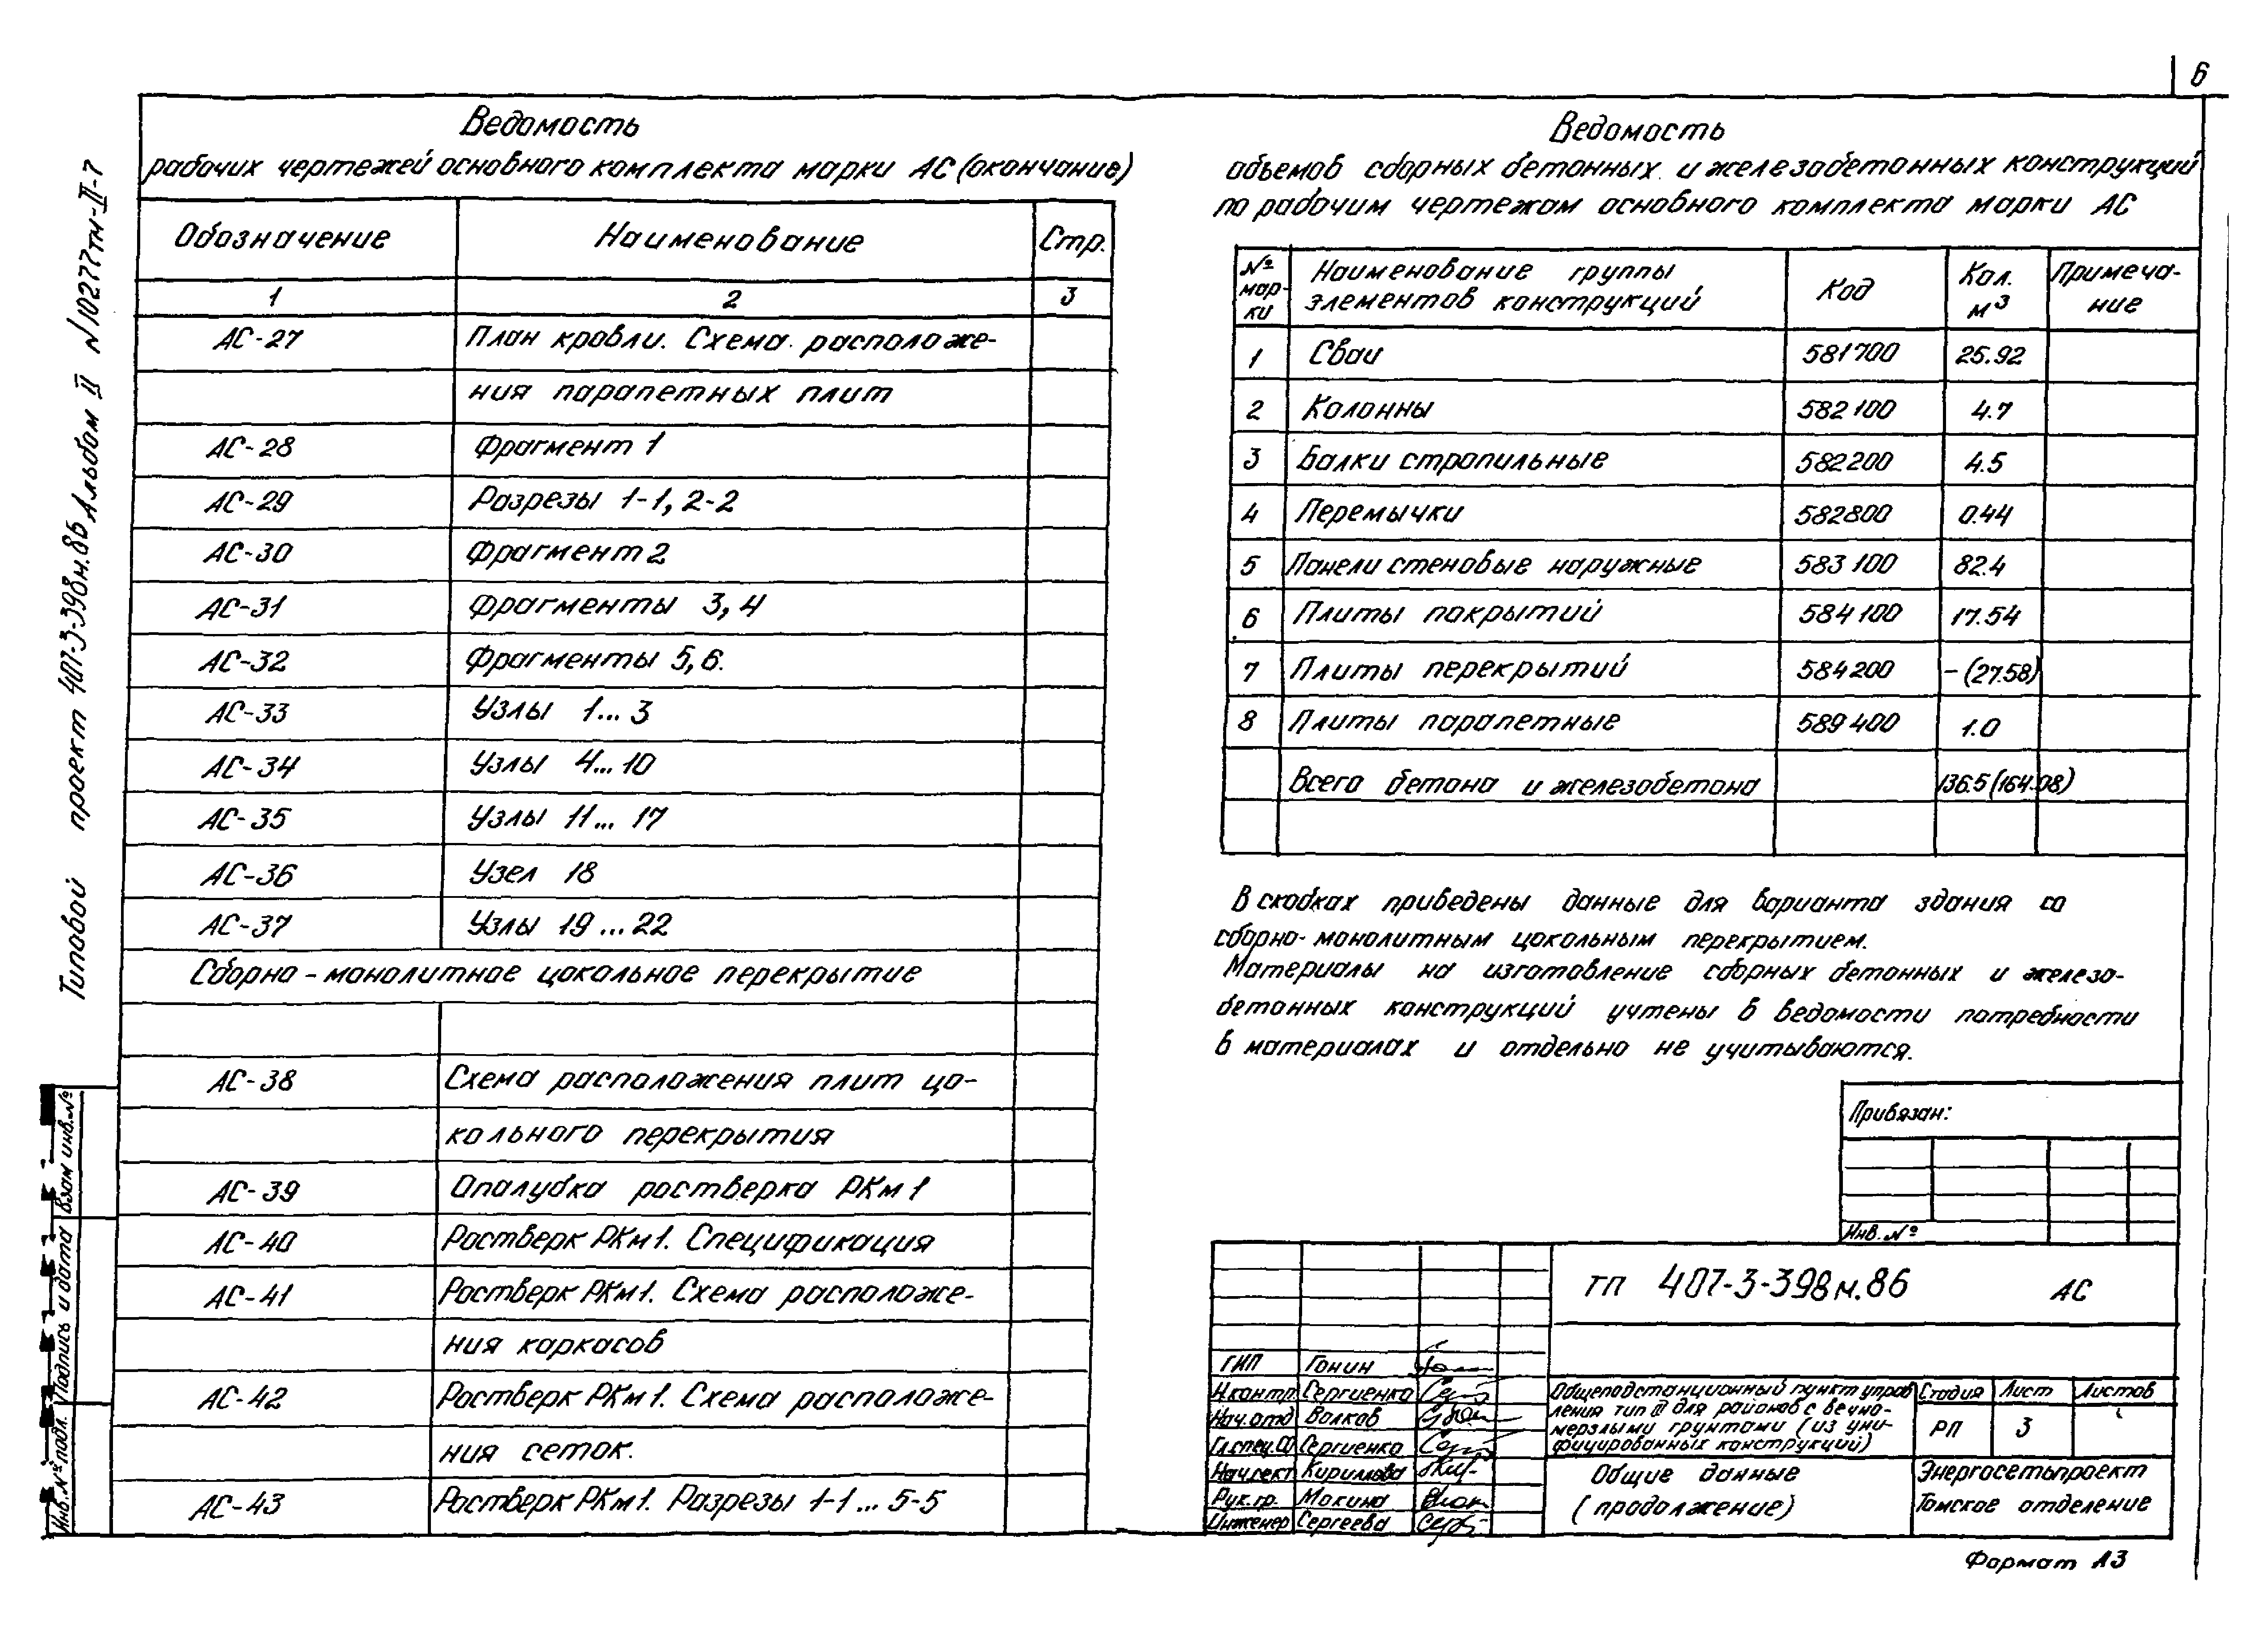 6
Ведомость
рабочих чертежей основного комплекта марки АС (окончание)
Обозначение Наименование Стр.
1 2 3
АС-27 План кровли. Схема расположе-
ния парапетных плит
АС-28 Фрагмент 1
АС-29 Разрезы 1-1, 2-2
АС-30 Фрагмент 2
АС-31 Фрагменты 3, 4
АС-32 Фрагменты 5, 6.
АС-33 Узлы 1...3
АС-34 Узлы 4...10
АС-35 Узлы 11...17
АС-36 Узел 18
АС-37 Узлы 19...22
Сборно-монолитное цокольное перекрытие
АС-38 Схема расположения плит цо-
кольного перекрытия
АС-39 Опалубка ростверка РКм1
АС-40 Ростверк РКм1. Спецификация
АС-41 Ростверк РКм1. Схема расположе-
ния каркасов
АС-42 Ростверк РКм1. Схема расположе-
ния сеток.
АС-43 Ростверк РКм1. Разрезы 1-1...5-5
Ведомость
объемов сборных бетонных и железобетонных конструкций
по рабочим чертежам основного комплекта марки АС
№ мар-ки Наименование группы элементов конструкций Код Кол. м3 Примеча-ние
1 Сваи 581700 25.92
2 Колонны 582100 4.7
3 Балки стропильные 582200 4.5
4 Перемычки 582800 0.44
5 Панели стеновые наружные 583100 82.4
6 Плиты покрытий 584100 17.54
7 Плиты перекрытий 584200 - (27.58)
8 Плиты парапетные 589400 1.0
Всего бетона и железобетона 136.5 (164.08)
В скобках приведены данные для варианта здания со
сборно-монолитным цокольным перекрытием.
Материалы на изготовление сборных бетонных и железо-
бетонных конструкций учтены в ведомости потребности
в материалах и отдельно не учитываются.
Привязан:
Инв. №
ТП 407-3-398м.86 АС
ГИП Гонин
Н.контр. Сергиенко
Нач.отд Волков
Гл.спец.СО Сергиенко
Нач.сект Киримова
Рук.гр. Мокина
Инженер Сергеева
Общеподстанционный пункт управ
ления тип III для районов с вечно-
мерзлыми грунтами (из уни-
фицированных конструкций)
Стадия Лист Листов
РП 3
Общие данные
(продолжение)
Энергосетьпроект
Томское отделение
Формат А3
Типовой проект 407-3-398м.86 Альбом II N10277тм-II-7
Инв. № подл. Подпись и дата Взам инв. №